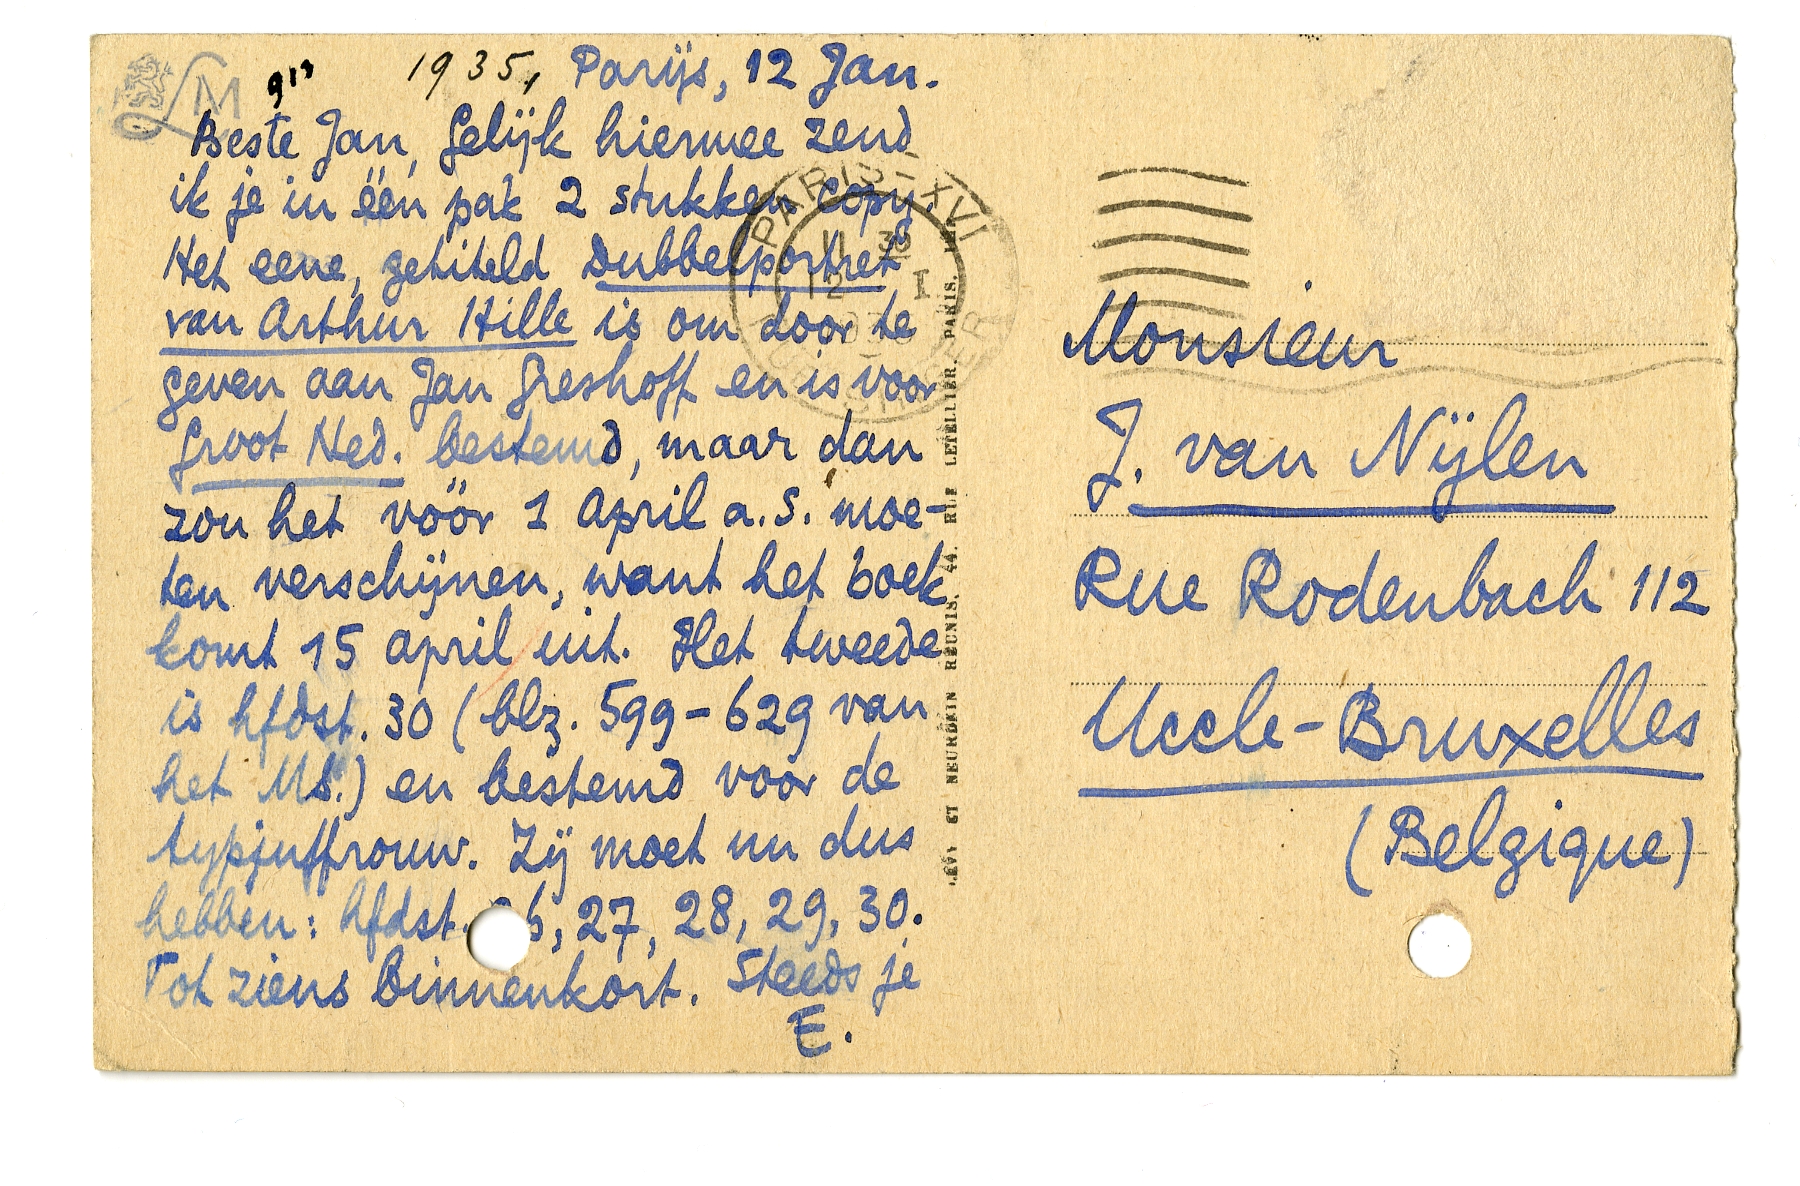 LM
1935, Parijs, 12 Jan.
Beste Jan, Gelijk hiermee zend
ik je in één pak 2 stukken copy.
Het eene, getiteld Dubbelportret
van Arthur Hille is om door te
geven aan Jan Greshoff en is voor
Groot Ned. bestemd, maar dan
zou het vóór 1 April a.s. moe-
ten verschijnen, want het boek
komt 15 april uit. Het tweede
is hfdst. 30 (blz. 599-629 van
het MS.) en bestemd voor de
typjuffrouw. Zij moet nu dus
hebben: hfdst. 26, 27, 28, 29, 30.
Tot ziens binnenkort. Steeds je
E.
PARIS-XVI
12 I
LEVY ET NEURDEIN RÉUNIS, 44, RUE LETELLIER, PARIS.
Monsieur
J. van Nijlen
Rue Rodenbach 112
Uccle-Bruxelles
(Belgique)